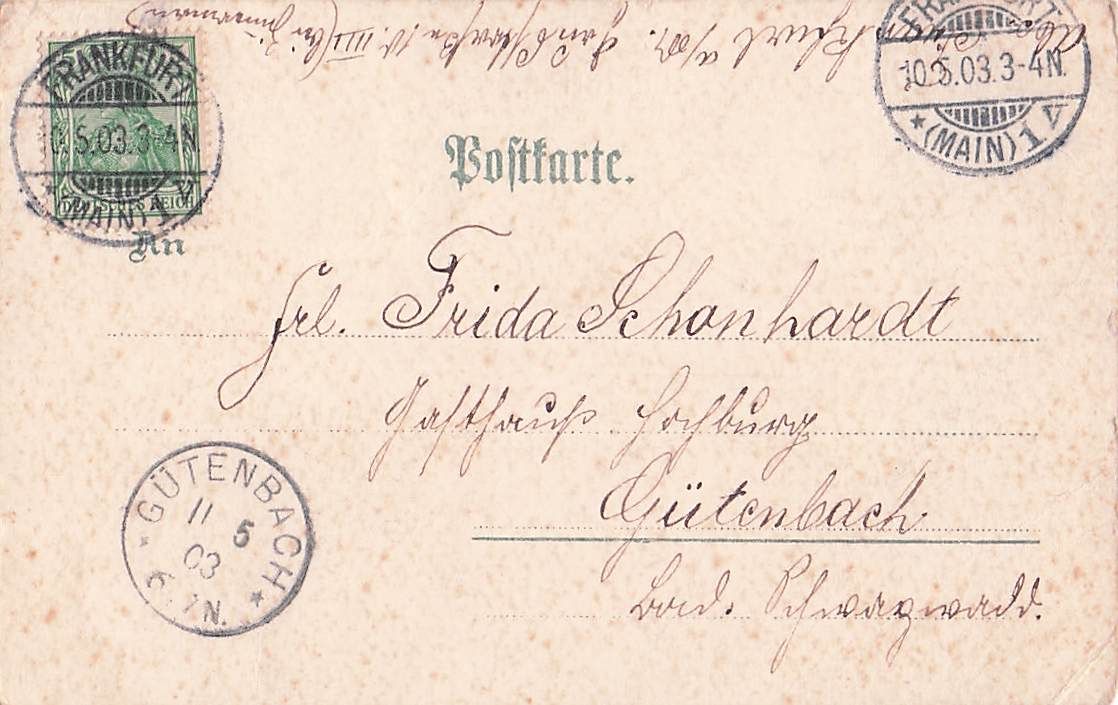 FRANKFURT
10.5.03.3-4N.
(MAIN) 1
FRANKFURT
10.5.03.3-4N
(MAIN) 1
DEUTSCHES REICH
Postkarte.
An
Frl. Frida Schonhardt
Gasthauß Hochburg
Gütenbach
Bad. Schwarzwald.
GÜTENBACH
11 5
03
6-7N.